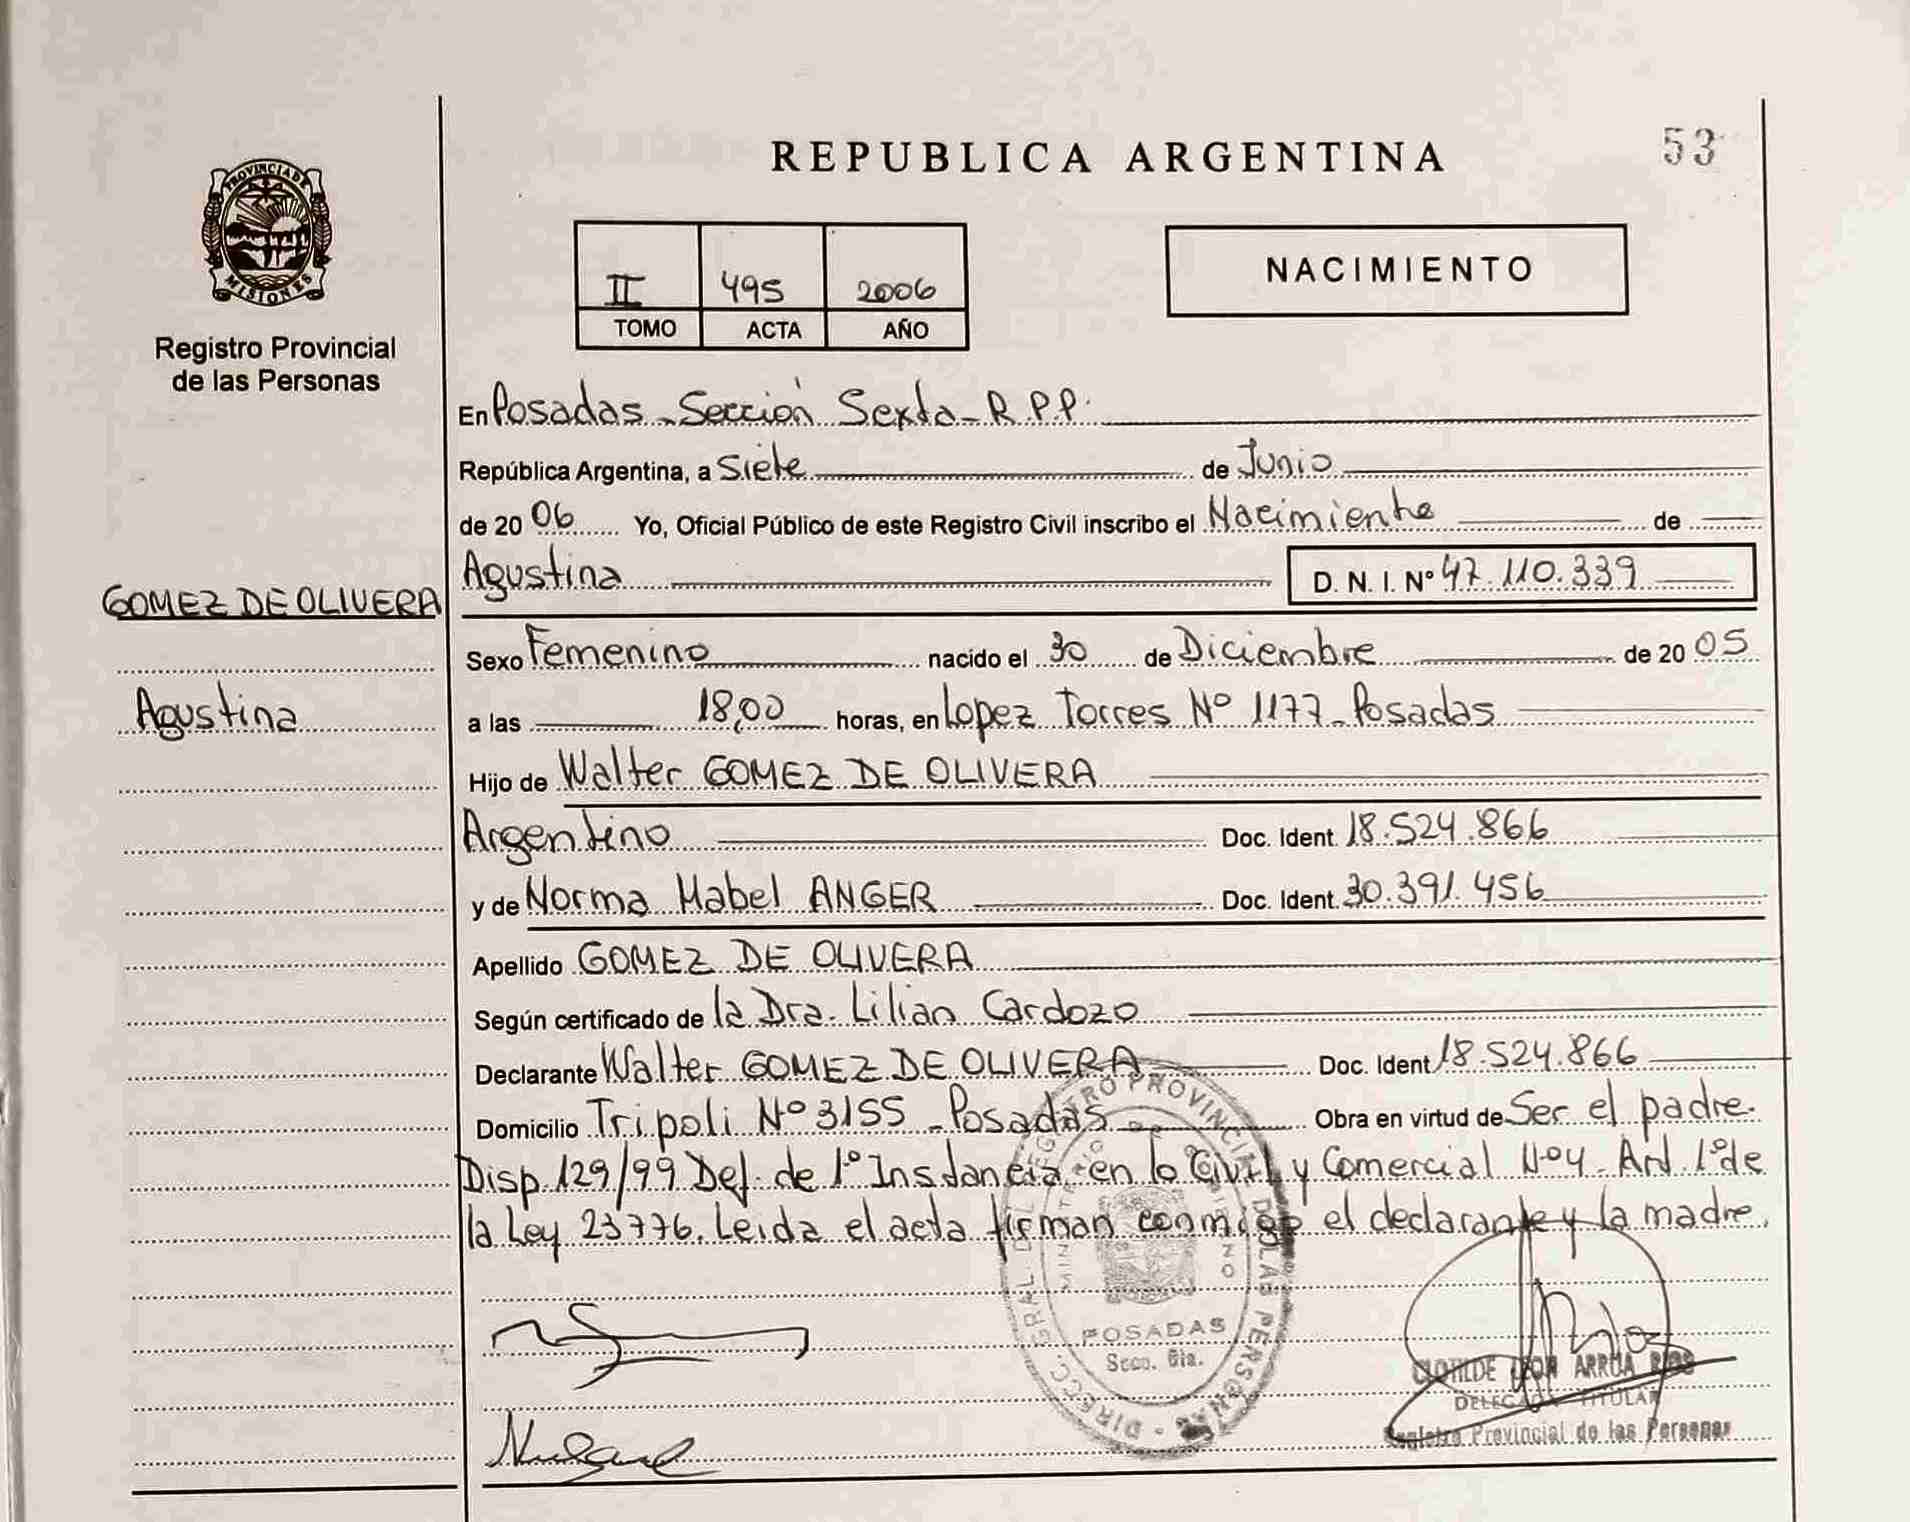 REPUBLICA ARGENTINA
53
PROVINCIA DE
MISIONES
Registro Provincial
de las Personas
II 495 2006
TOMO ACTA AÑO
NACIMIENTO
En Posadas - Sección Sexta - R.P.P.
República Argentina, a Siete de Junio
de 20 06 Yo, Oficial Público de este Registro Civil inscribo el Nacimiento de
Agustina D. N. I. Nº 47.110.339
GOMEZ DE OLIVERA
Sexo Femenino nacido el 30 de Diciembre de 20 05
Agustina
a las 18,00 horas, en Lopez Torres Nº 1177 - Posadas
Hijo de Walter GOMEZ DE OLIVERA
Argentino Doc. Ident. 18.524.866
y de Norma Mabel ANGER Doc. Ident. 30.391.456
Apellido GOMEZ DE OLIVERA
Según certificado de la Dra. Lilian Cardozo
Declarante Walter GOMEZ DE OLIVERA Doc. Ident 18.524.866
Domicilio Tripoli Nº 3155 - Posadas Obra en virtud de Ser el padre.
Disp. 129/99 Def. de 1º Instancia en lo Civil y Comercial Nº 4. Art 1º de
la Ley 23776. Leida el acta firman conmigo el declarante y la madre.
DIRECC. GRAL. DEL REGISTRO PROVINCIAL DE LAS PERSONAS
MINISTERIO DE GOBIERNO
POSADAS
Secc. 6ta.
CLOTILDE LEON ARRUA RIOS
DELEGADA TITULAR
Registro Provincial de las Personas